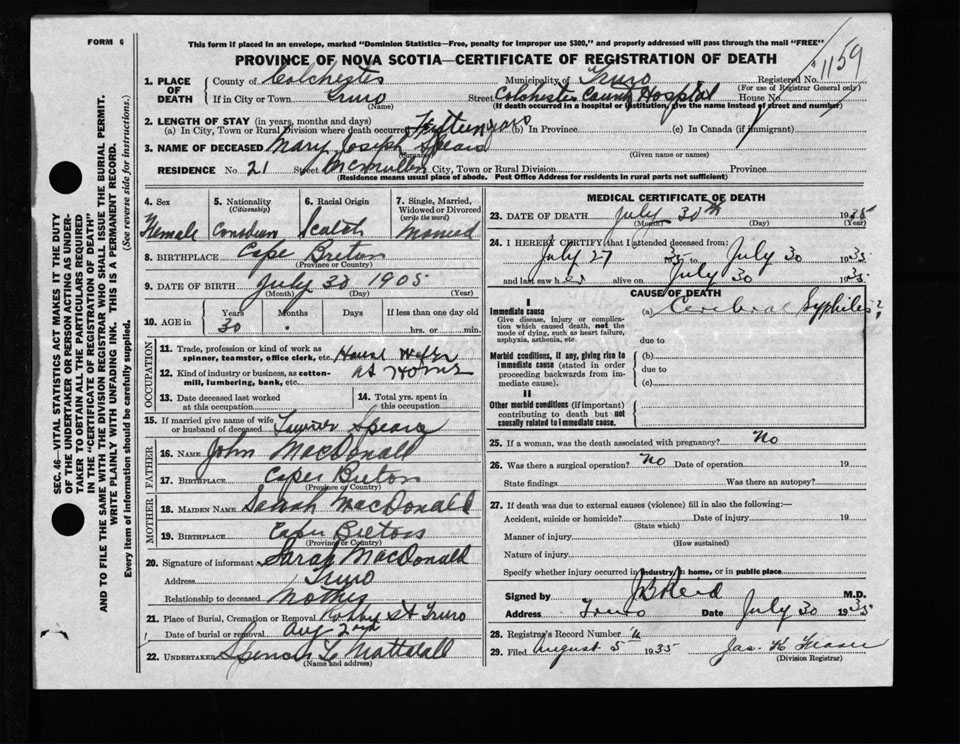 FORM 6
This form if placed in an envelope, marked "Dominion Statistics—Free, penalty for improper use $300," and properly addressed will pass through the mail "FREE"
PROVINCE OF NOVA SCOTIA—CERTIFICATE OF REGISTRATION OF DEATH
1159
1. PLACE OF DEATH County of Colchester Municipality of Truro Registered No.
(For use of Registrar General only)
If in City or Town Truro Street Colchester County Hospital House No.
(If death occurred in a hospital or institution, give the name instead of street and number)
2. LENGTH OF STAY (in years, months and days)
(a) In City, Town or Rural Division where death occurred Fifteen years (b) In Province (c) In Canada (if immigrant)
3. NAME OF DECEASED Mary Joseph Spears
(Surname) (Given name or names)
RESIDENCE No. 21 Street McMullen City, Town or Rural Division Province
(Residence means usual place of abode. Post Office Address for residents in rural parts not sufficient)
4. Sex
Female
5. Nationality
(Citizenship)
Canadian
6. Racial Origin
Scotch
7. Single, Married, Widowed or Divorced
(write the word)
Married
8. BIRTHPLACE Cape Breton
(Province or Country)
9. DATE OF BIRTH July 30 1905
(Month) (Day) (Year)
10. AGE in Years Months Days If less than one day old
30 hrs. or min.
OCCUPATION
11. Trade, profession or kind of work as spinner, teamster, office clerk, etc. House Wife
12. Kind of industry or business, as cotton-mill, lumbering, bank, etc. at Home
13. Date deceased last worked at this occupation
14. Total yrs. spent in this occupation
15. If married give name of wife or husband of deceased Spears
FATHER
16. NAME John MacDonald
17. BIRTHPLACE Cape Breton
(Province or Country)
MOTHER
18. MAIDEN NAME Sarah MacDonald
19. BIRTHPLACE Cape Breton
(Province or Country)
20. Signature of informant Sarah MacDonald
Address Truro
Relationship to deceased Mother
21. Place of Burial, Cremation or Removal St Truro
Date of burial or removal Aug 2nd
22. UNDERTAKER Spencer L. Mattatall
(Name and address)
MEDICAL CERTIFICATE OF DEATH
23. DATE OF DEATH July 30th 1935
(Month) (Day) (Year)
24. I HEREBY CERTIFY that I attended deceased from:
July 27 1935 to July 30 1935
and last saw her alive on July 30 1935
CAUSE OF DEATH
I
Immediate cause
Give disease, injury or complication which caused death, not the mode of dying, such as heart failure, asphyxia, asthenia, etc.
(a) Cerebral Syphilis?
due to
Morbid conditions, if any, giving rise to immediate cause (stated in order proceeding backwards from immediate cause).
(b)
due to
(c)
II
Other morbid conditions (if important) contributing to death but not causally related to immediate cause.
25. If a woman, was the death associated with pregnancy? No
26. Was there a surgical operation? No Date of operation 19
State findings Was there an autopsy?
27. If death was due to external causes (violence) fill in also the following:—
Accident, suicide or homicide? Date of injury 19
(State which)
Manner of injury
(How sustained)
Nature of injury
Specify whether injury occurred in industry, in home, or in public place
Signed by J B Reid M.D.
Address Truro Date July 30 1935
28. Registrar's Record Number
29. Filed August 5 1935 Jas. K Fraser
(Division Registrar)
SEC. 46—VITAL STATISTICS ACT MAKES IT THE DUTY
OF THE UNDERTAKER OR PERSON ACTING AS UNDER-
TAKER TO OBTAIN ALL THE PARTICULARS REQUIRED
IN THE "CERTIFICATE OF REGISTRATION OF DEATH"
AND TO FILE THE SAME WITH THE DIVISION REGISTRAR WHO SHALL ISSUE THE BURIAL PERMIT.
WRITE PLAINLY WITH UNFADING INK. THIS IS A PERMANENT RECORD.
Every item of information should be carefully supplied. (See reverse side for instructions.)